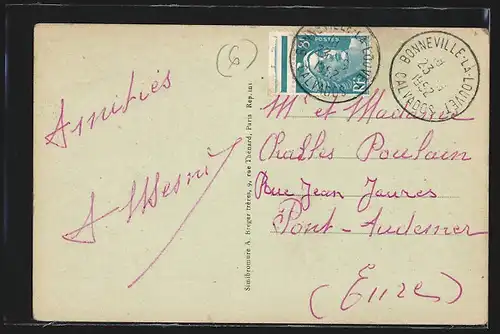 6
BONNEVILLE-LA-LOUVET
23
1952
CALVADOS
POSTES
RF
BONNEVILLE-LA-LOUVET
CALVADOS
Amitiés
Mr et Madame
Charles Poulain
Rue Jean Jaurès
Pont-Audemer
(Eure)
Simibromure A. Breger frères, 9, rue Thénard, Paris Rep. int